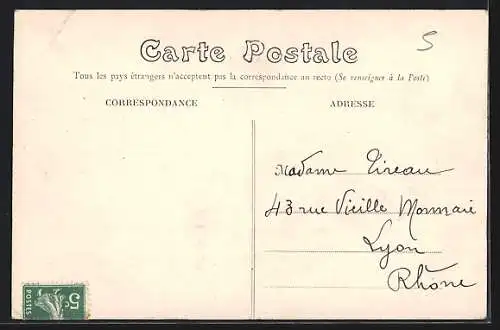 5
Carte Postale
Tous les pays étrangers n'acceptent pas la correspondance au recto (Se renseigner à la Poste)
CORRESPONDANCE
ADRESSE
Madame Tireau
43 rue Vieille Monnaie
Lyon
Rhône
5c
POSTES